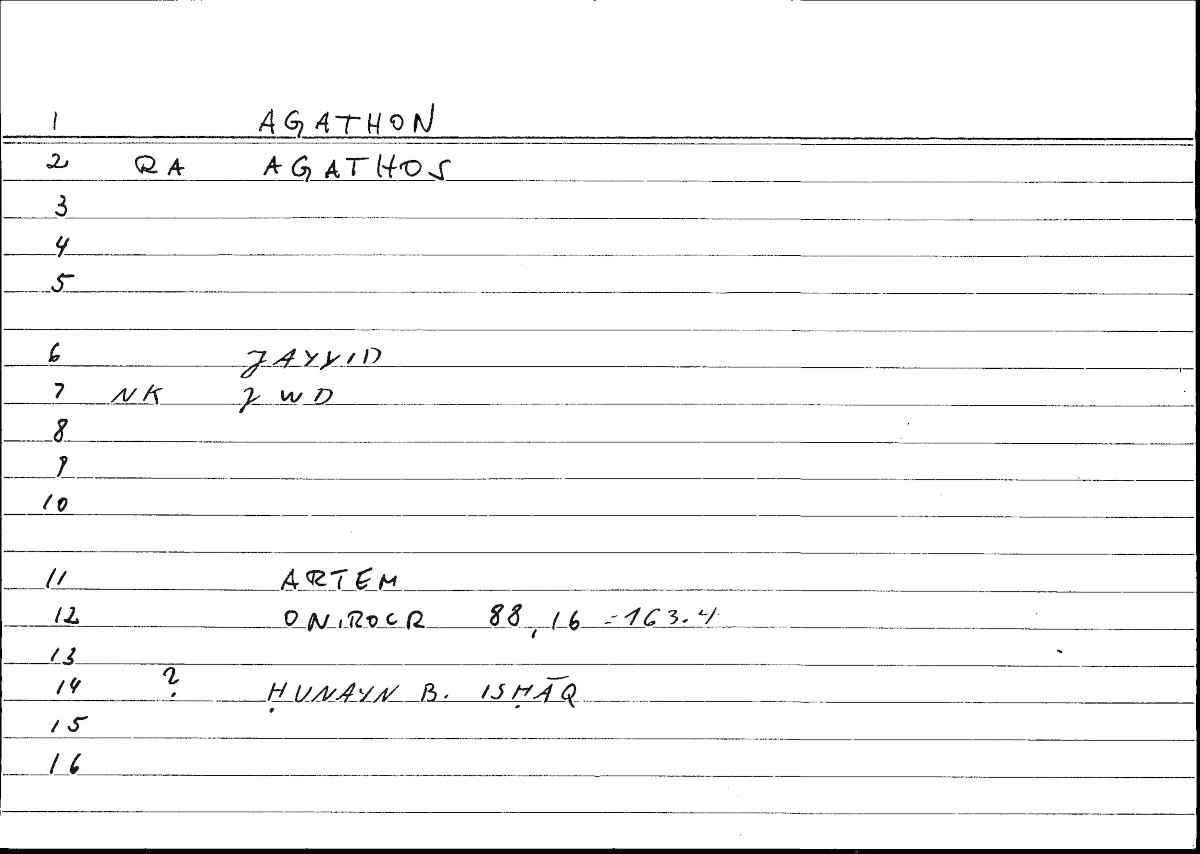 1 AGATHON
2 RA AGATHOS
3
4
5
6 JAYYID
7 NK JWD
8
9
10
11 ARTEM
12 ONIROCR 88,16 = 163.4
13
14 ? ḤUNAYN B. ISḤĀQ
15
16